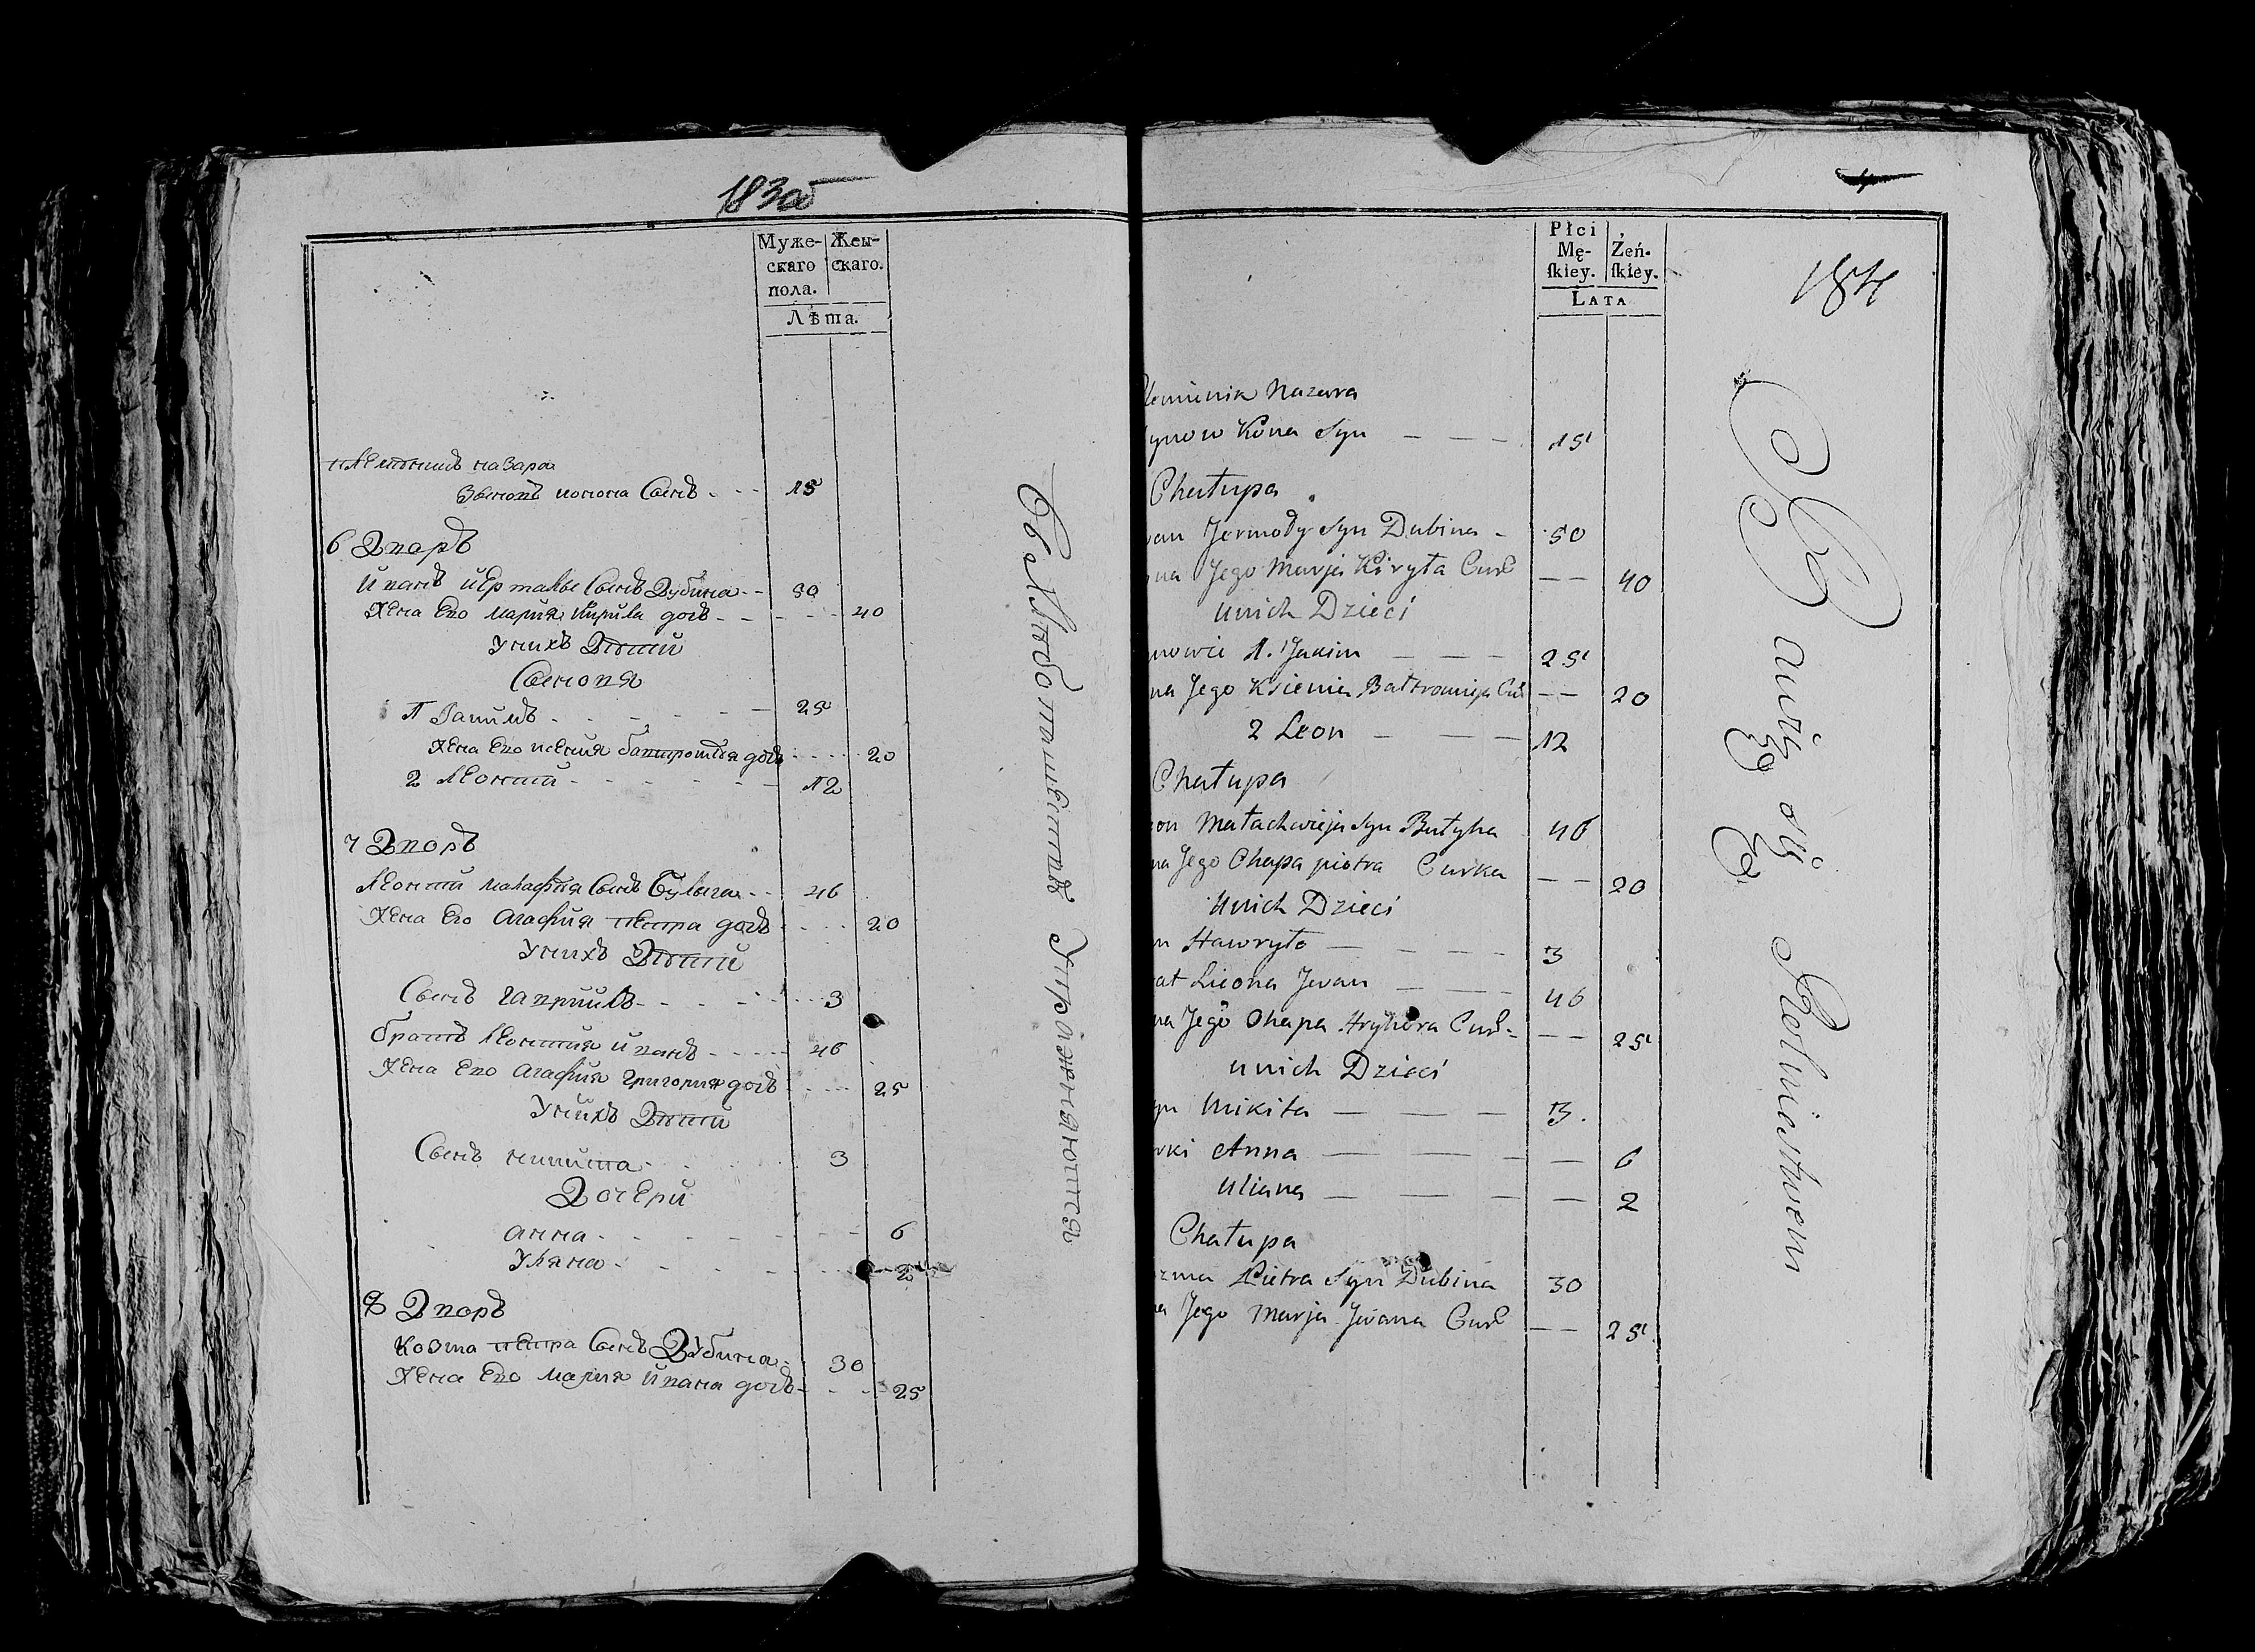 183об
Муже-
скаго
пола.
Жен-
скаго.
Лѣта.
племѣникъ назара
Зѣновъ конона Сынъ 15
6 Дворъ
Иванъ Иермолы Сынъ Дубина 50
Жена Его Мария Кирила дочь 40
У нихъ Дѣти
Сыновя
1 Иакимъ 25
Жена Его ксения балтромѣя дочь 20
2 Леонтій 12
7 Дворъ
Леонтій малафѣя Сынъ Булыга 46
Жена Его агафия петра дочь 20
У нихъ Дѣти
Сынъ гаврийлъ 3
братъ Леонтия Иванъ 46
Жена Его агафия григория дочь 25
У нихъ Дѣти
Сынъ никита 3
Дочери
анна 6
Уляна 2
8 Дворъ
козма петра Сынъ Дубина 30
Жена Его Мария Ивана дочь 25
Съ хлѣбопашества Упражняются
Płci
Mę-
ſkiey.
Żeń-
ſkiey.
LATA
184
leminik Nazara
ynow Kona Syn 15
Chałupa
wan Jermoły Syn Dubina 50
na Jego Marja Kiryła Curk 40
u nich Dzieci
nowie 1. Jakim 25
na Jego Ksienia Bałtromieja Cur 20
2 Leon 12
Chałupa
on Małachwieja Syn Bułyha 46
na Jego Ohapa piotra Curka 20
u nich Dzieci
n Hawryło 3
at Liona Jwan 46
na Jego Ohapa Hryhora Curk 25
u nich Dzieci
yn Mikita 3.
rki Anna 6
Uliana 2
Chałupa
ozma Pietra Syn Dubina 30
na Jego Marja Jwana Curk 25
Bawią się Rolnictwem